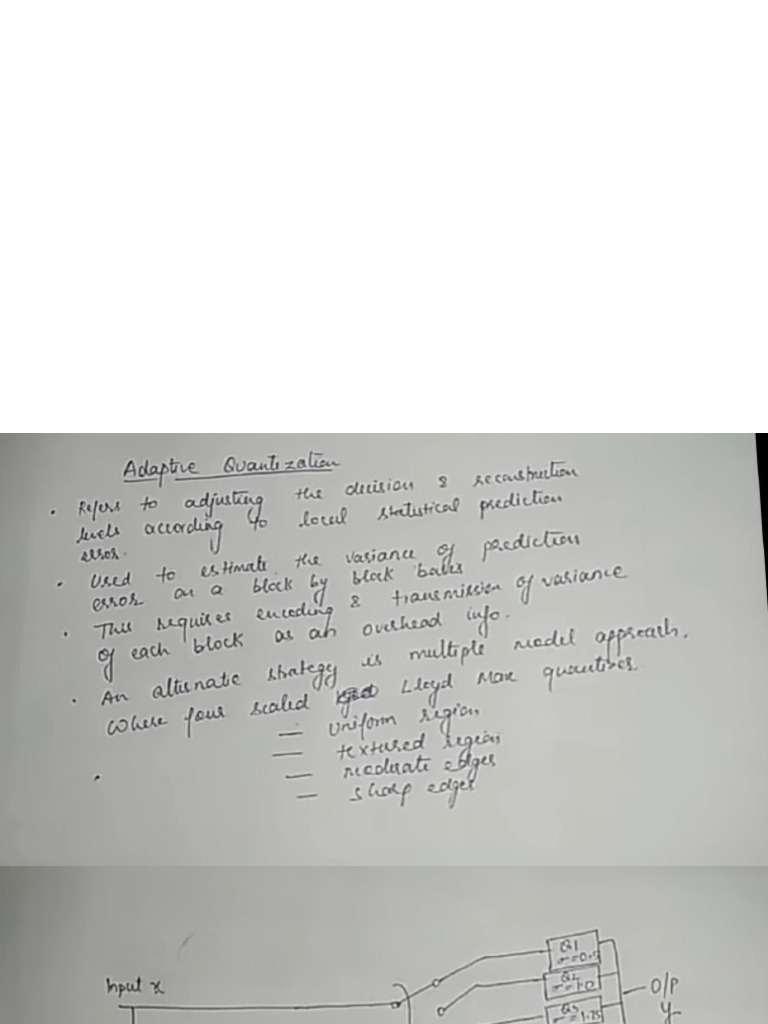 Adaptive Quantization
• Refers to adjusting the decision & reconstruction
levels according to local statistical prediction
error.
• Used to estimate the variance of prediction
error on a block by block basis
• This requires encoding & transmission of variance
of each block as an overhead info.
• An alternate strategy is multiple model approach,
where four scaled Lloyd Max quantizer
— Uniform region
— textured region
— moderate edges
• — sharp edges
Input x
Q1
σ=0.5
Q2
σ=1.0
Q3
σ=1.75
O/P
y